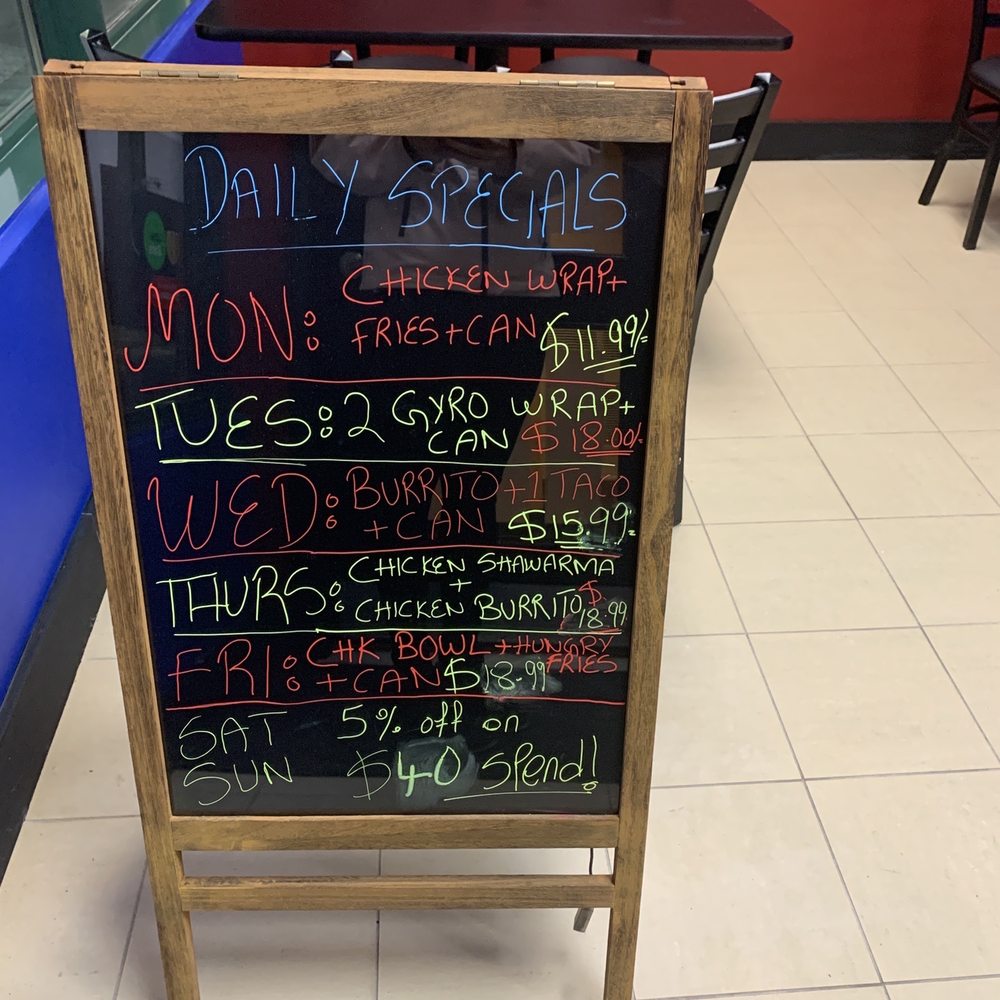 DAILY SPECIALS
MON: CHICKEN WRAP+
FRIES+CAN $11.99/-
TUES: 2 GYRO WRAP+
CAN $18.00/-
WED: BURRITO +1 TACO
+CAN $15.99
THURS: CHICKEN SHAWARMA
+
CHICKEN BURRITO $18.99
FRI: CHK BOWL +HUNGRY FRIES
+CAN $18.99
SAT 5% off on
SUN $40 Spend!